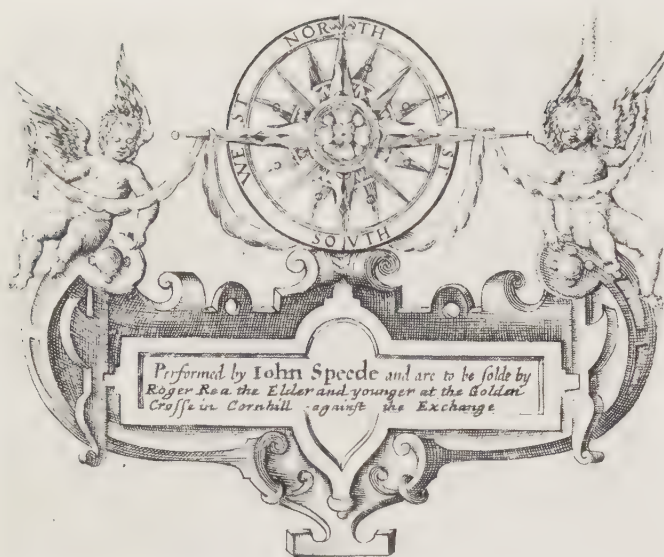 NORTH
WEST
EAST
SOVTH
Performed by Iohn Speede and are to be solde by
Roger Rea the Elder and younger at the Golden
Crosse in Cornhill against the Exchange